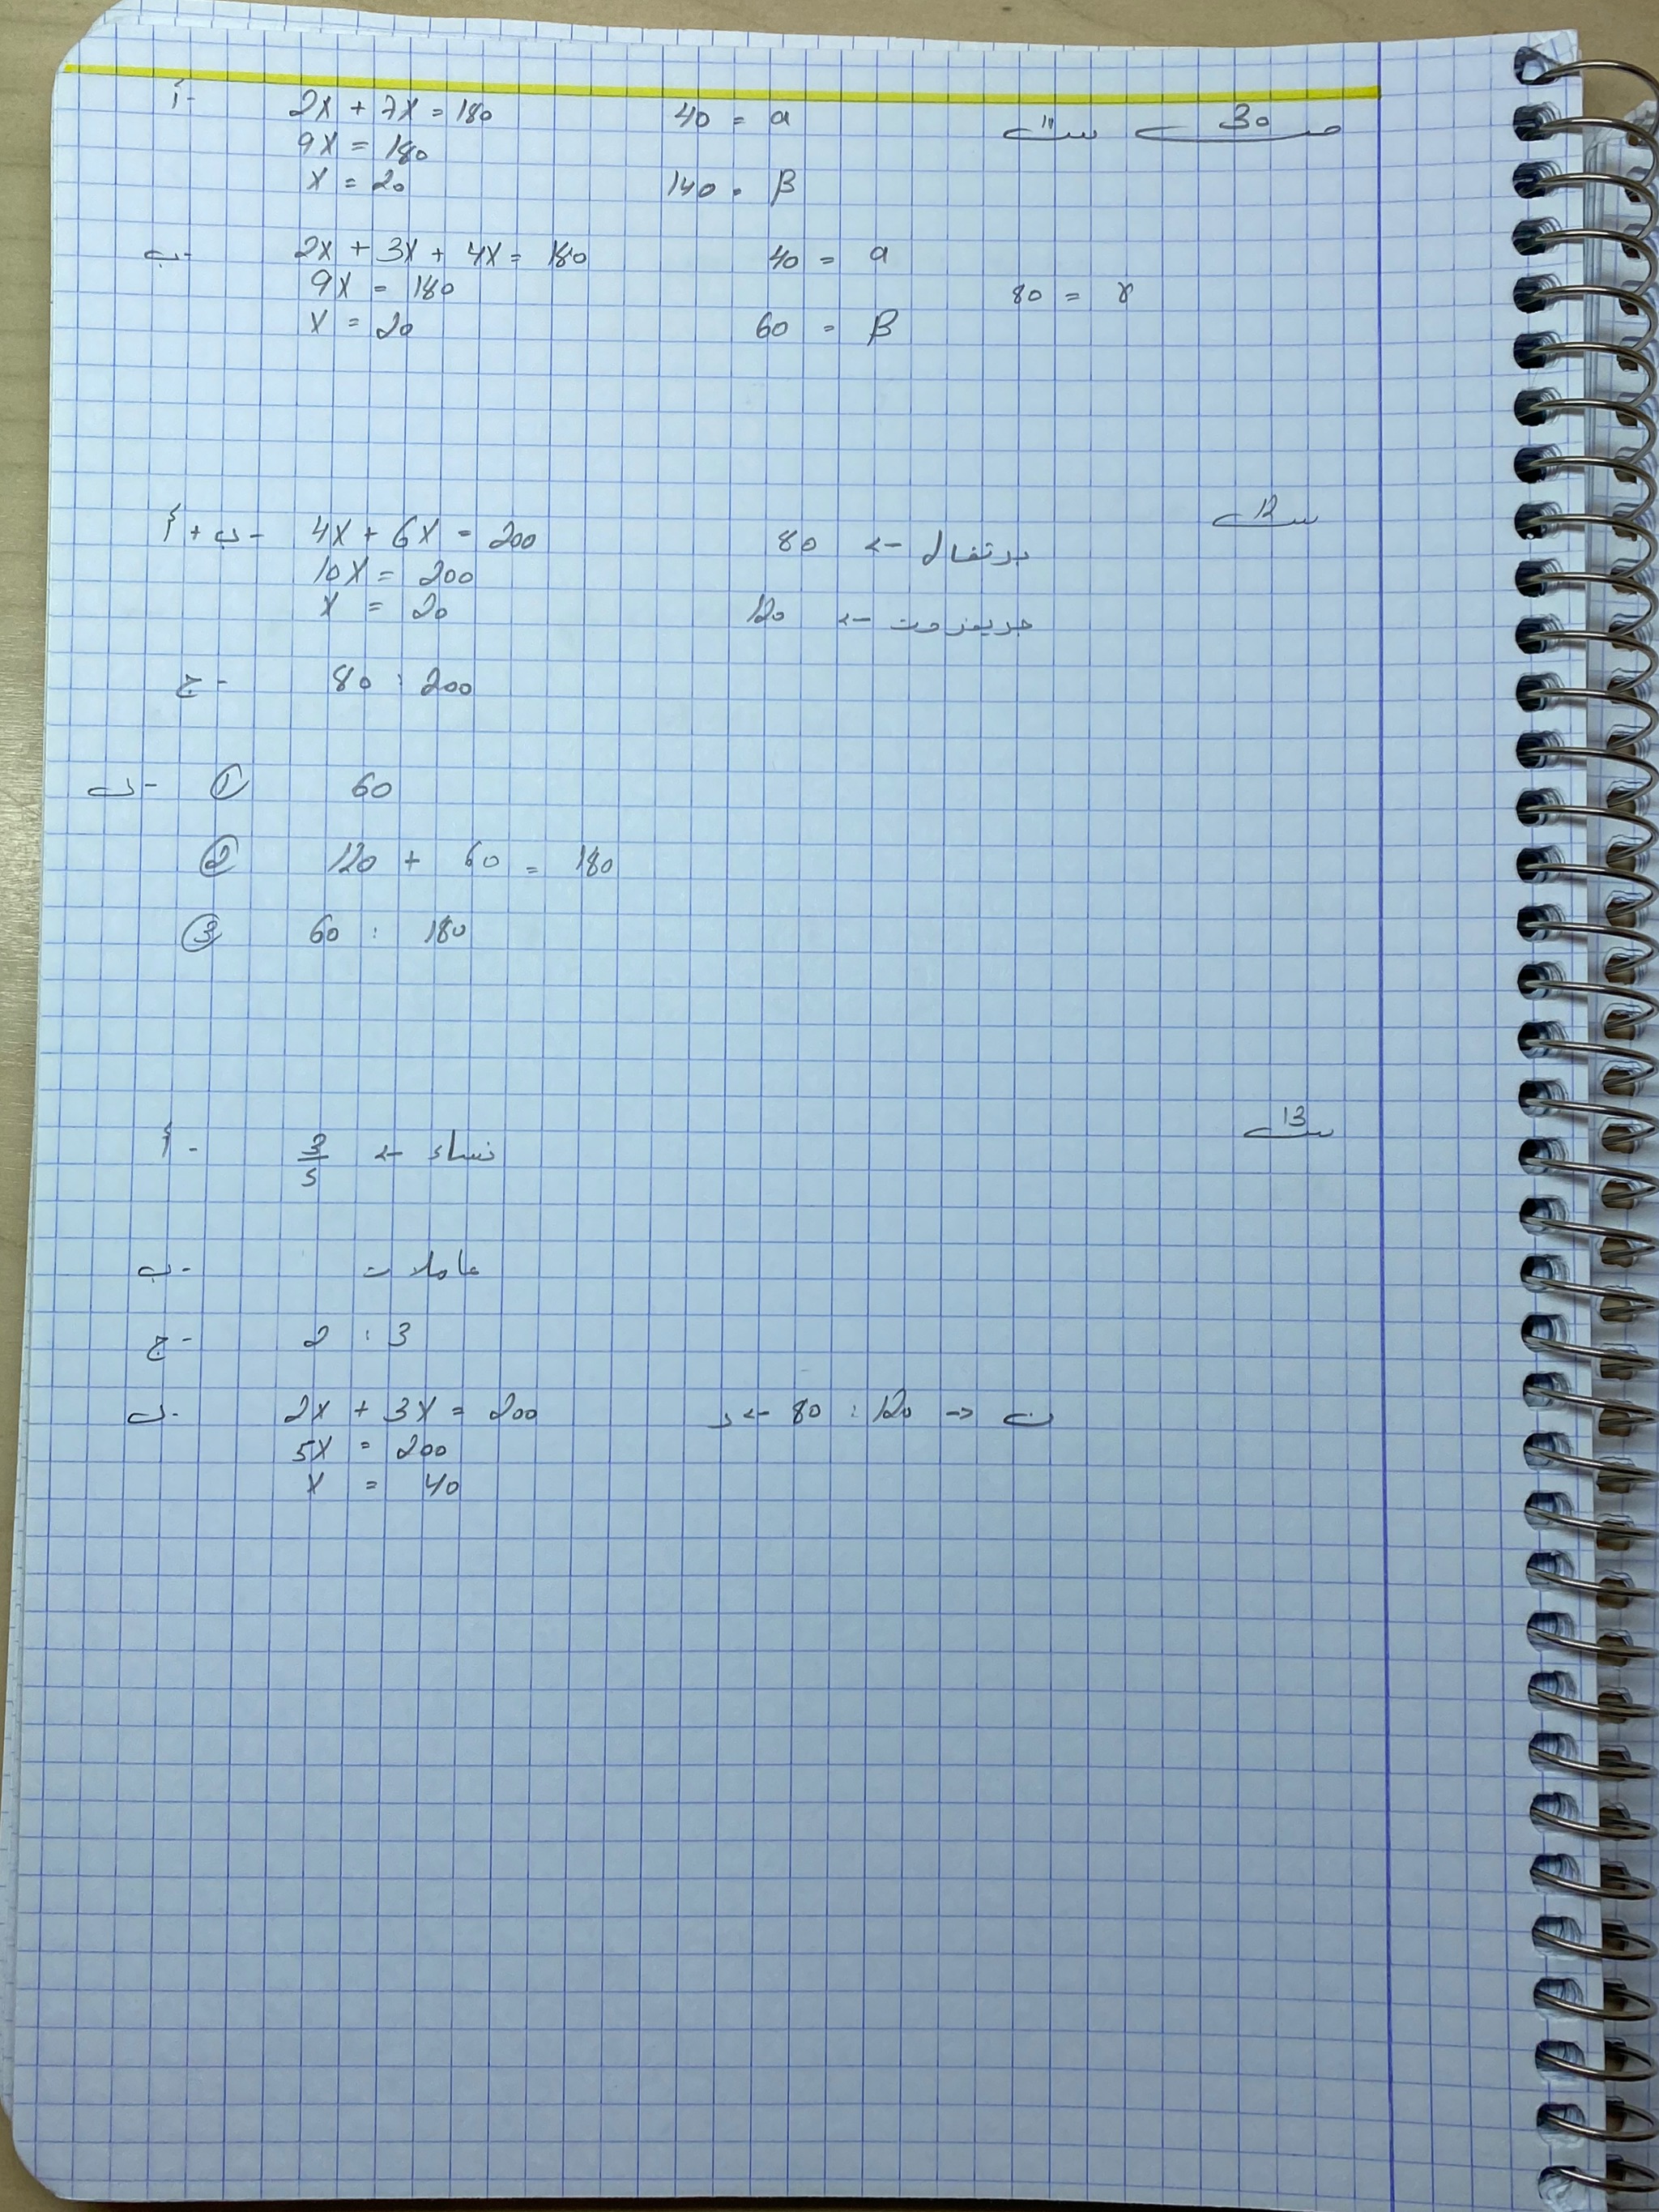 ص 30 س 11
أ- 2x + 7x = 180 40 = α
9x = 180
x = 20 140 = β
ب- 2x + 3x + 4x = 180 40 = α
9x = 180 80 = γ
x = 20 60 = β
س 12
أ + ب - 4x + 6x = 200 برتقال ← 80
10x = 200
x = 20 جريفروت ← 120
ج - 80 : 200
د - ① 60
② 120 + 60 = 180
③ 60 : 180
س 13
أ - 3/5 ← نساء
ب - عاملات
ج - 2 : 3
د - 2x + 3x = 200 ر ← 80 : 120 → ن
5x = 200
x = 40